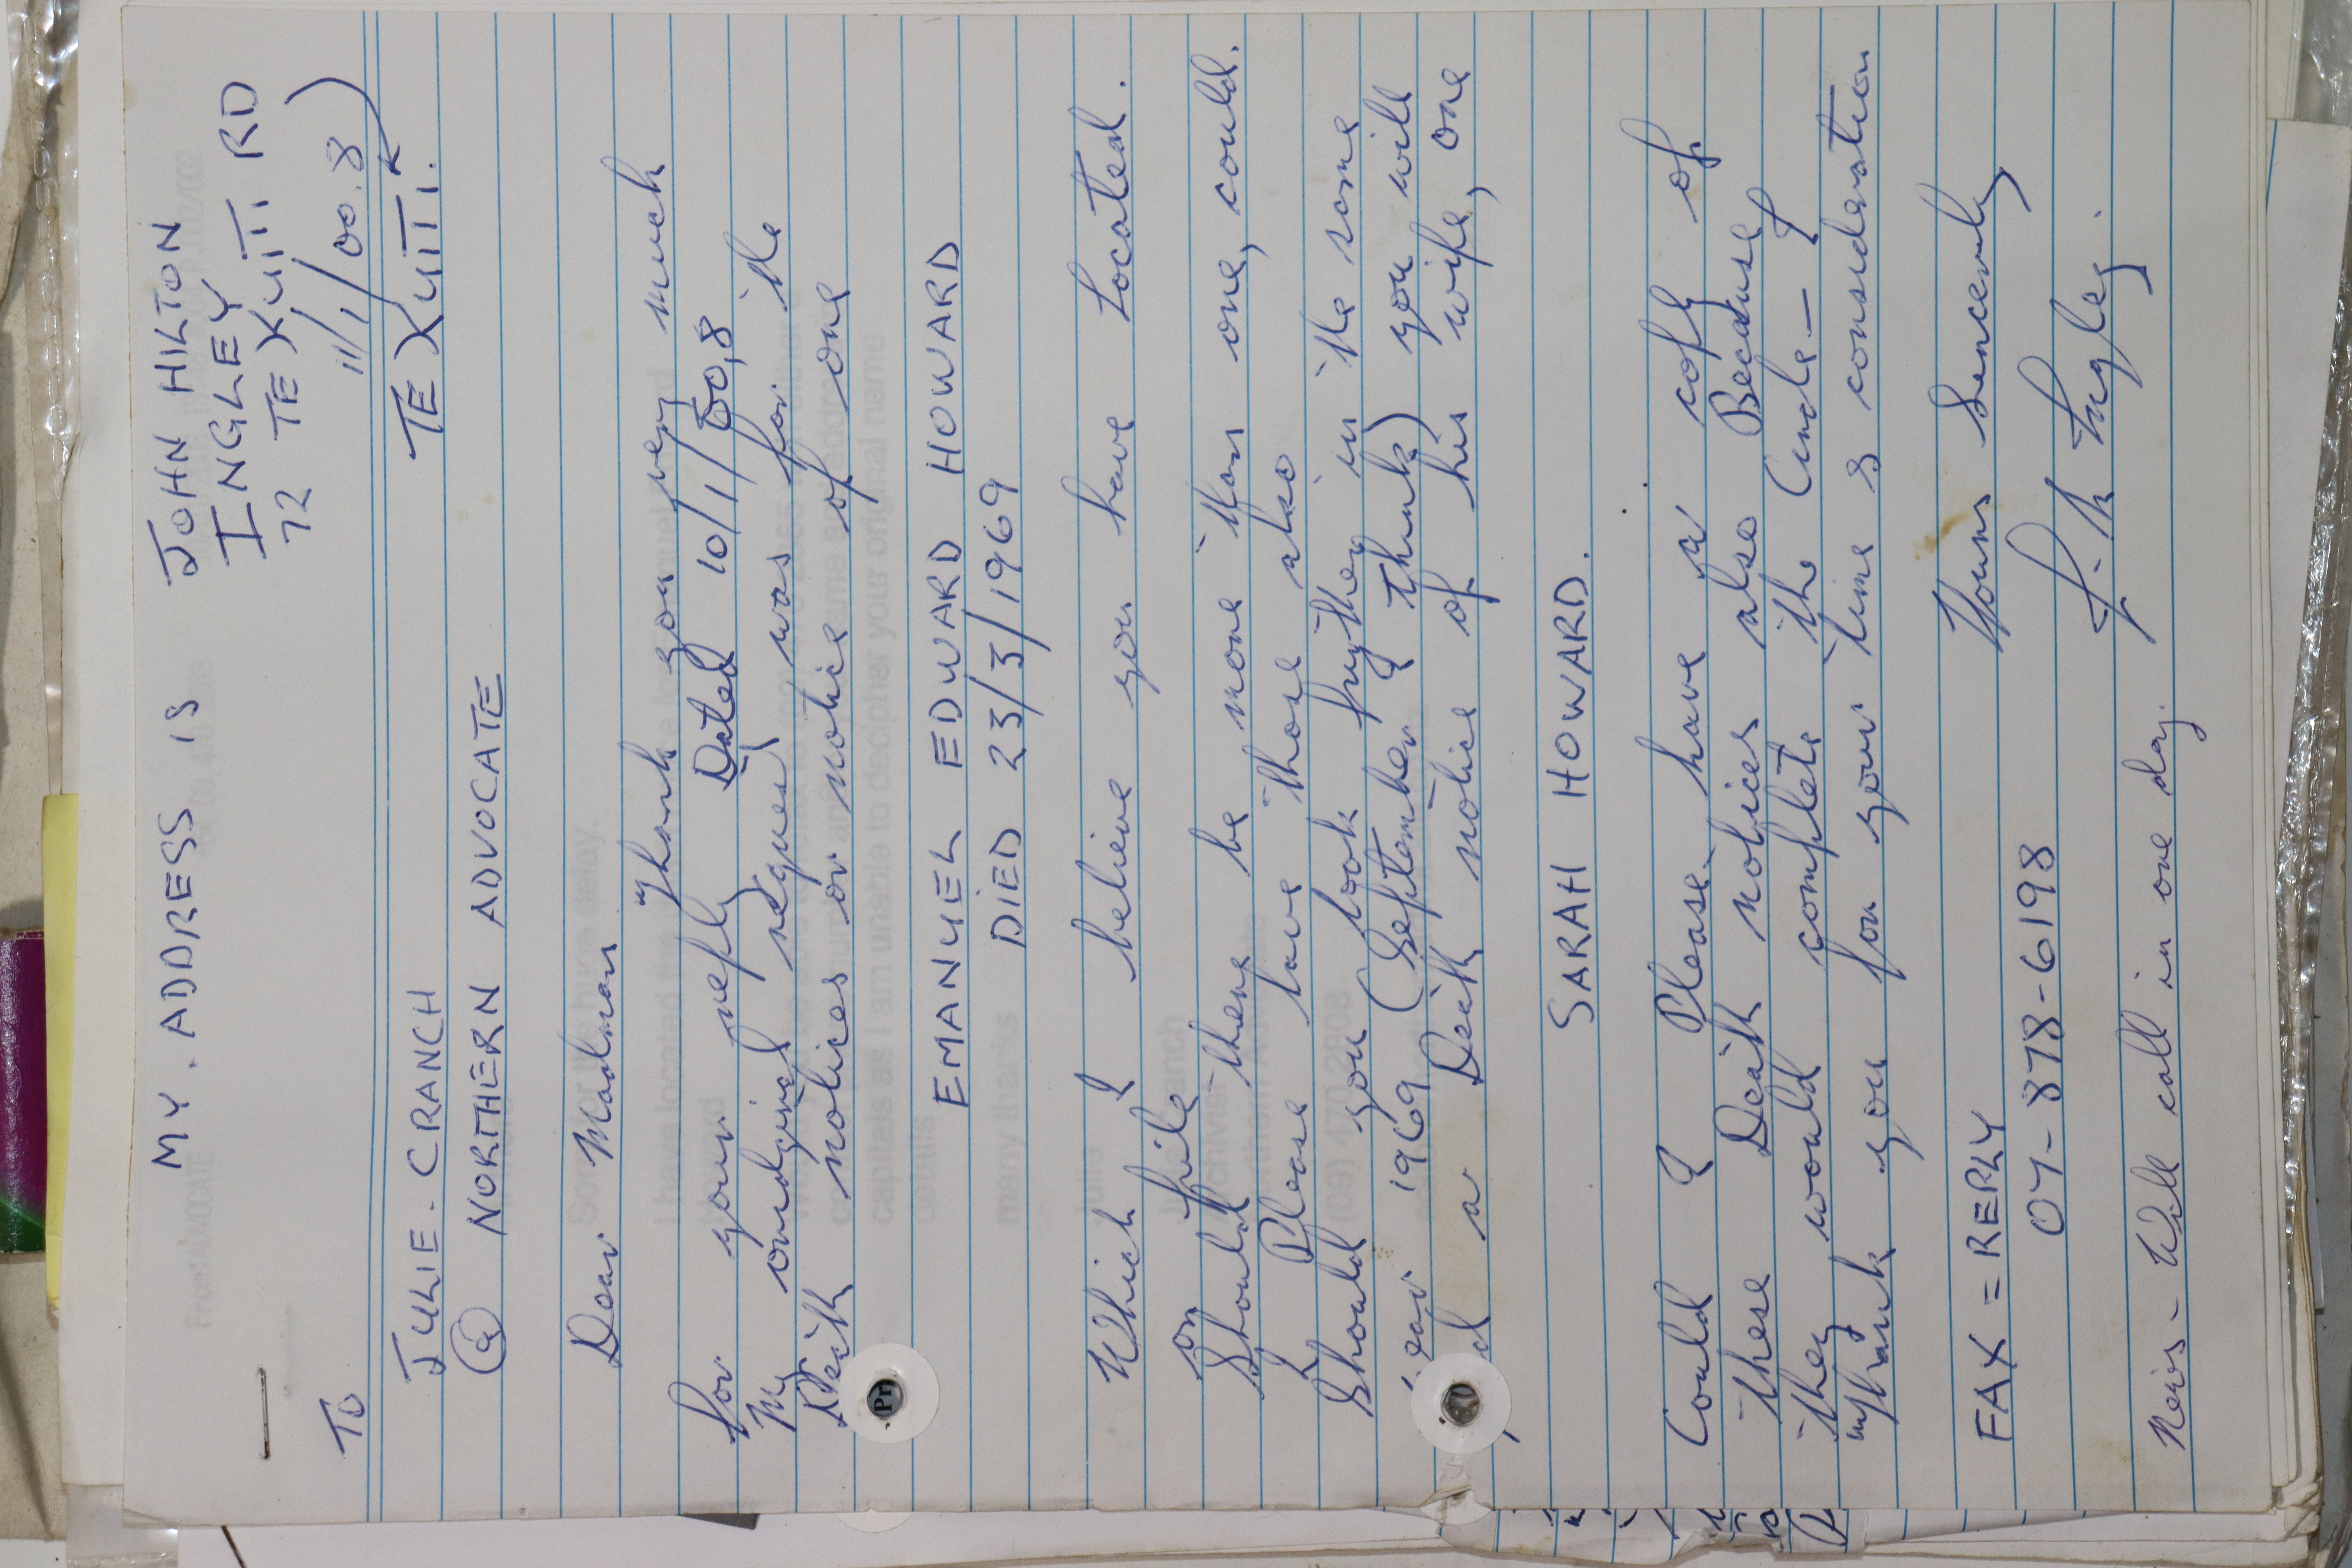 MY. ADDRESS IS JOHN HILTON
INGLEY
72 TE KUITI RD
11/1/00.8
TO
TE KUITI.
JULIE - CRANCH
@ NORTHERN ADVOCATE
Dear Madman
Thank you very much
for your reply Dated 10/1/00,8
My original request was for the
Death notices or notice of one
EMANUEL EDWARD HOWARD
DIED 23/3/1969
Which I believe you have Located.
on file
Should there be more than one, could.
I Please have those also
Should you look further in the same
year 1969 (September I think) you will
a Death notice of his wife, one
SARAH HOWARD.
Could I Please have a copy of
these Death notices also Because
they would complete the Circle - I
thank you for your time & consideration
Yours Sincerely
J. H Ingley.
FAX = REPLY
07-878-6198
News - Will call in one day.
Sorry for the huge delay.
capitals as I am unable to decipher your original name
details
many thanks
Julie